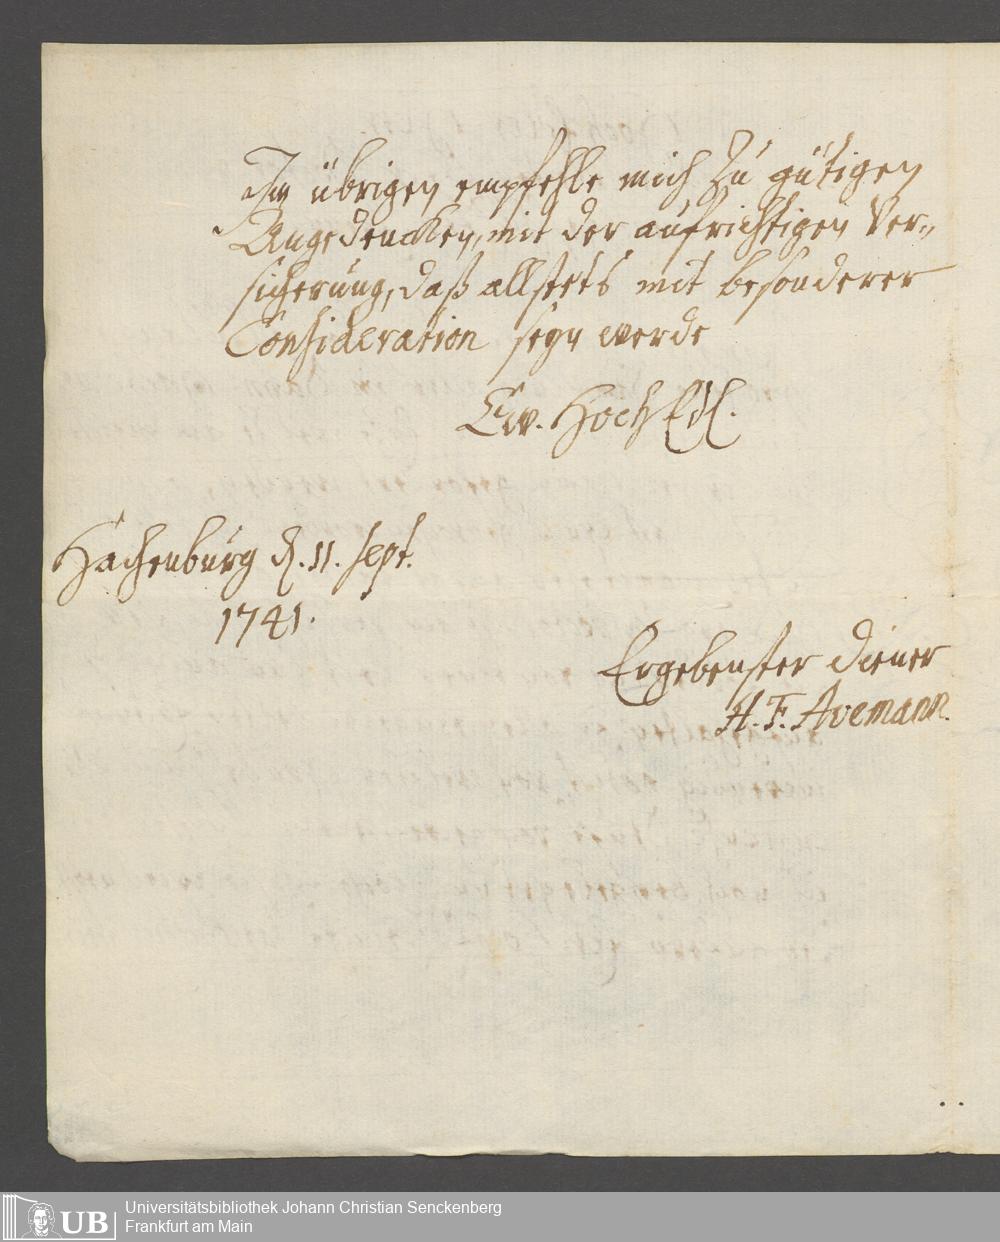 Im übrigen empfehle mich zu gütigen
Angedencken, mit der aufrichtigen Ver-
sicherung, daß allstets mit besonderer
Consideration seyn werde
Ew. HochEdl.
Hachenburg d. 11. Sept.
1741.
Ergebenster diener
H. F. Avemann.
Universitätsbibliothek Johann Christian Senckenberg
Frankfurt am Main
UB